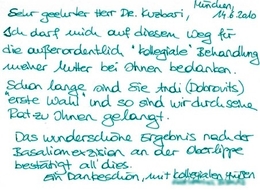 München,
14.6.2010
Sehr geehrter Herr Dr. Kuzbari,
Ich darf mich auf diesem Weg für
die außerordentlich "kollegiale" Behandlung
meiner Mutter bei Ihnen bedanken.
Schon lange sind Sie Andi (Dobrovits)
"erste Wahl" und so sind wir durch seinen
Rat zu Ihnen gelangt.
Das wunderschöne Ergebnis nach der
Basaliomexzision an der Oberlippe
bestätigt all dies.
Ein Dankeschön, mit kollegialen Grüßen